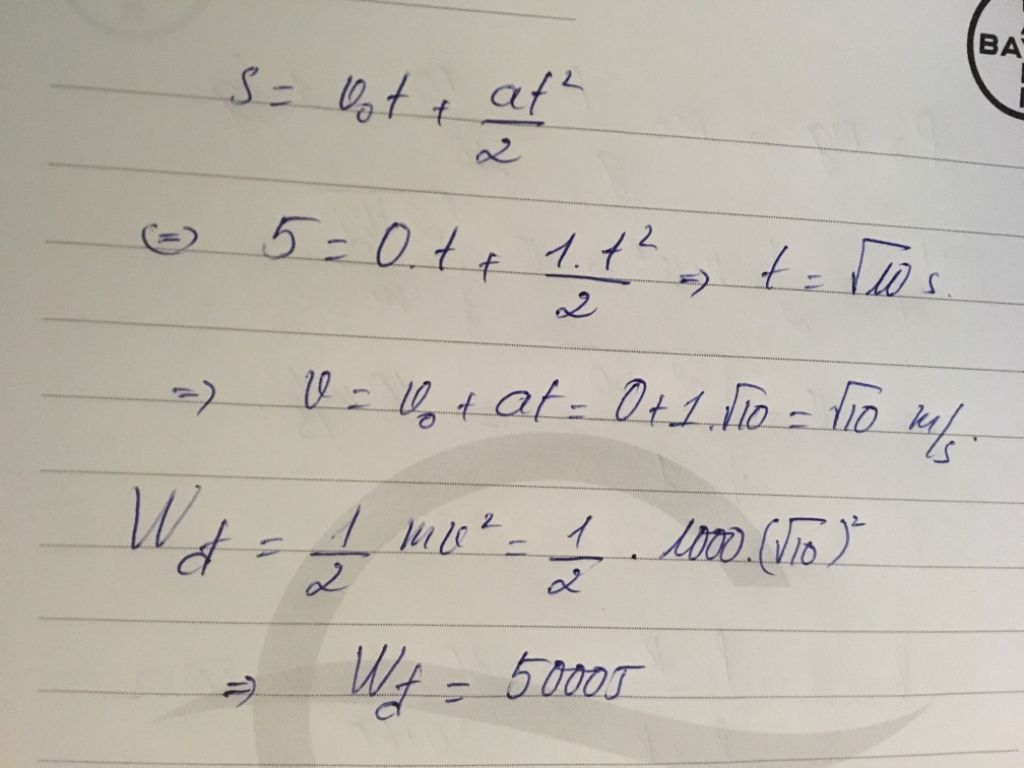 BA
S = v₀t + at²/2
(=) 5 = 0.t + 1.t²/2 => t = √10 s.
=> v = v₀ + at = 0 + 1.√10 = √10 m/s.
Wđ = 1/2 mv² = 1/2 . 1000.(√10)²
=> Wđ = 5000J